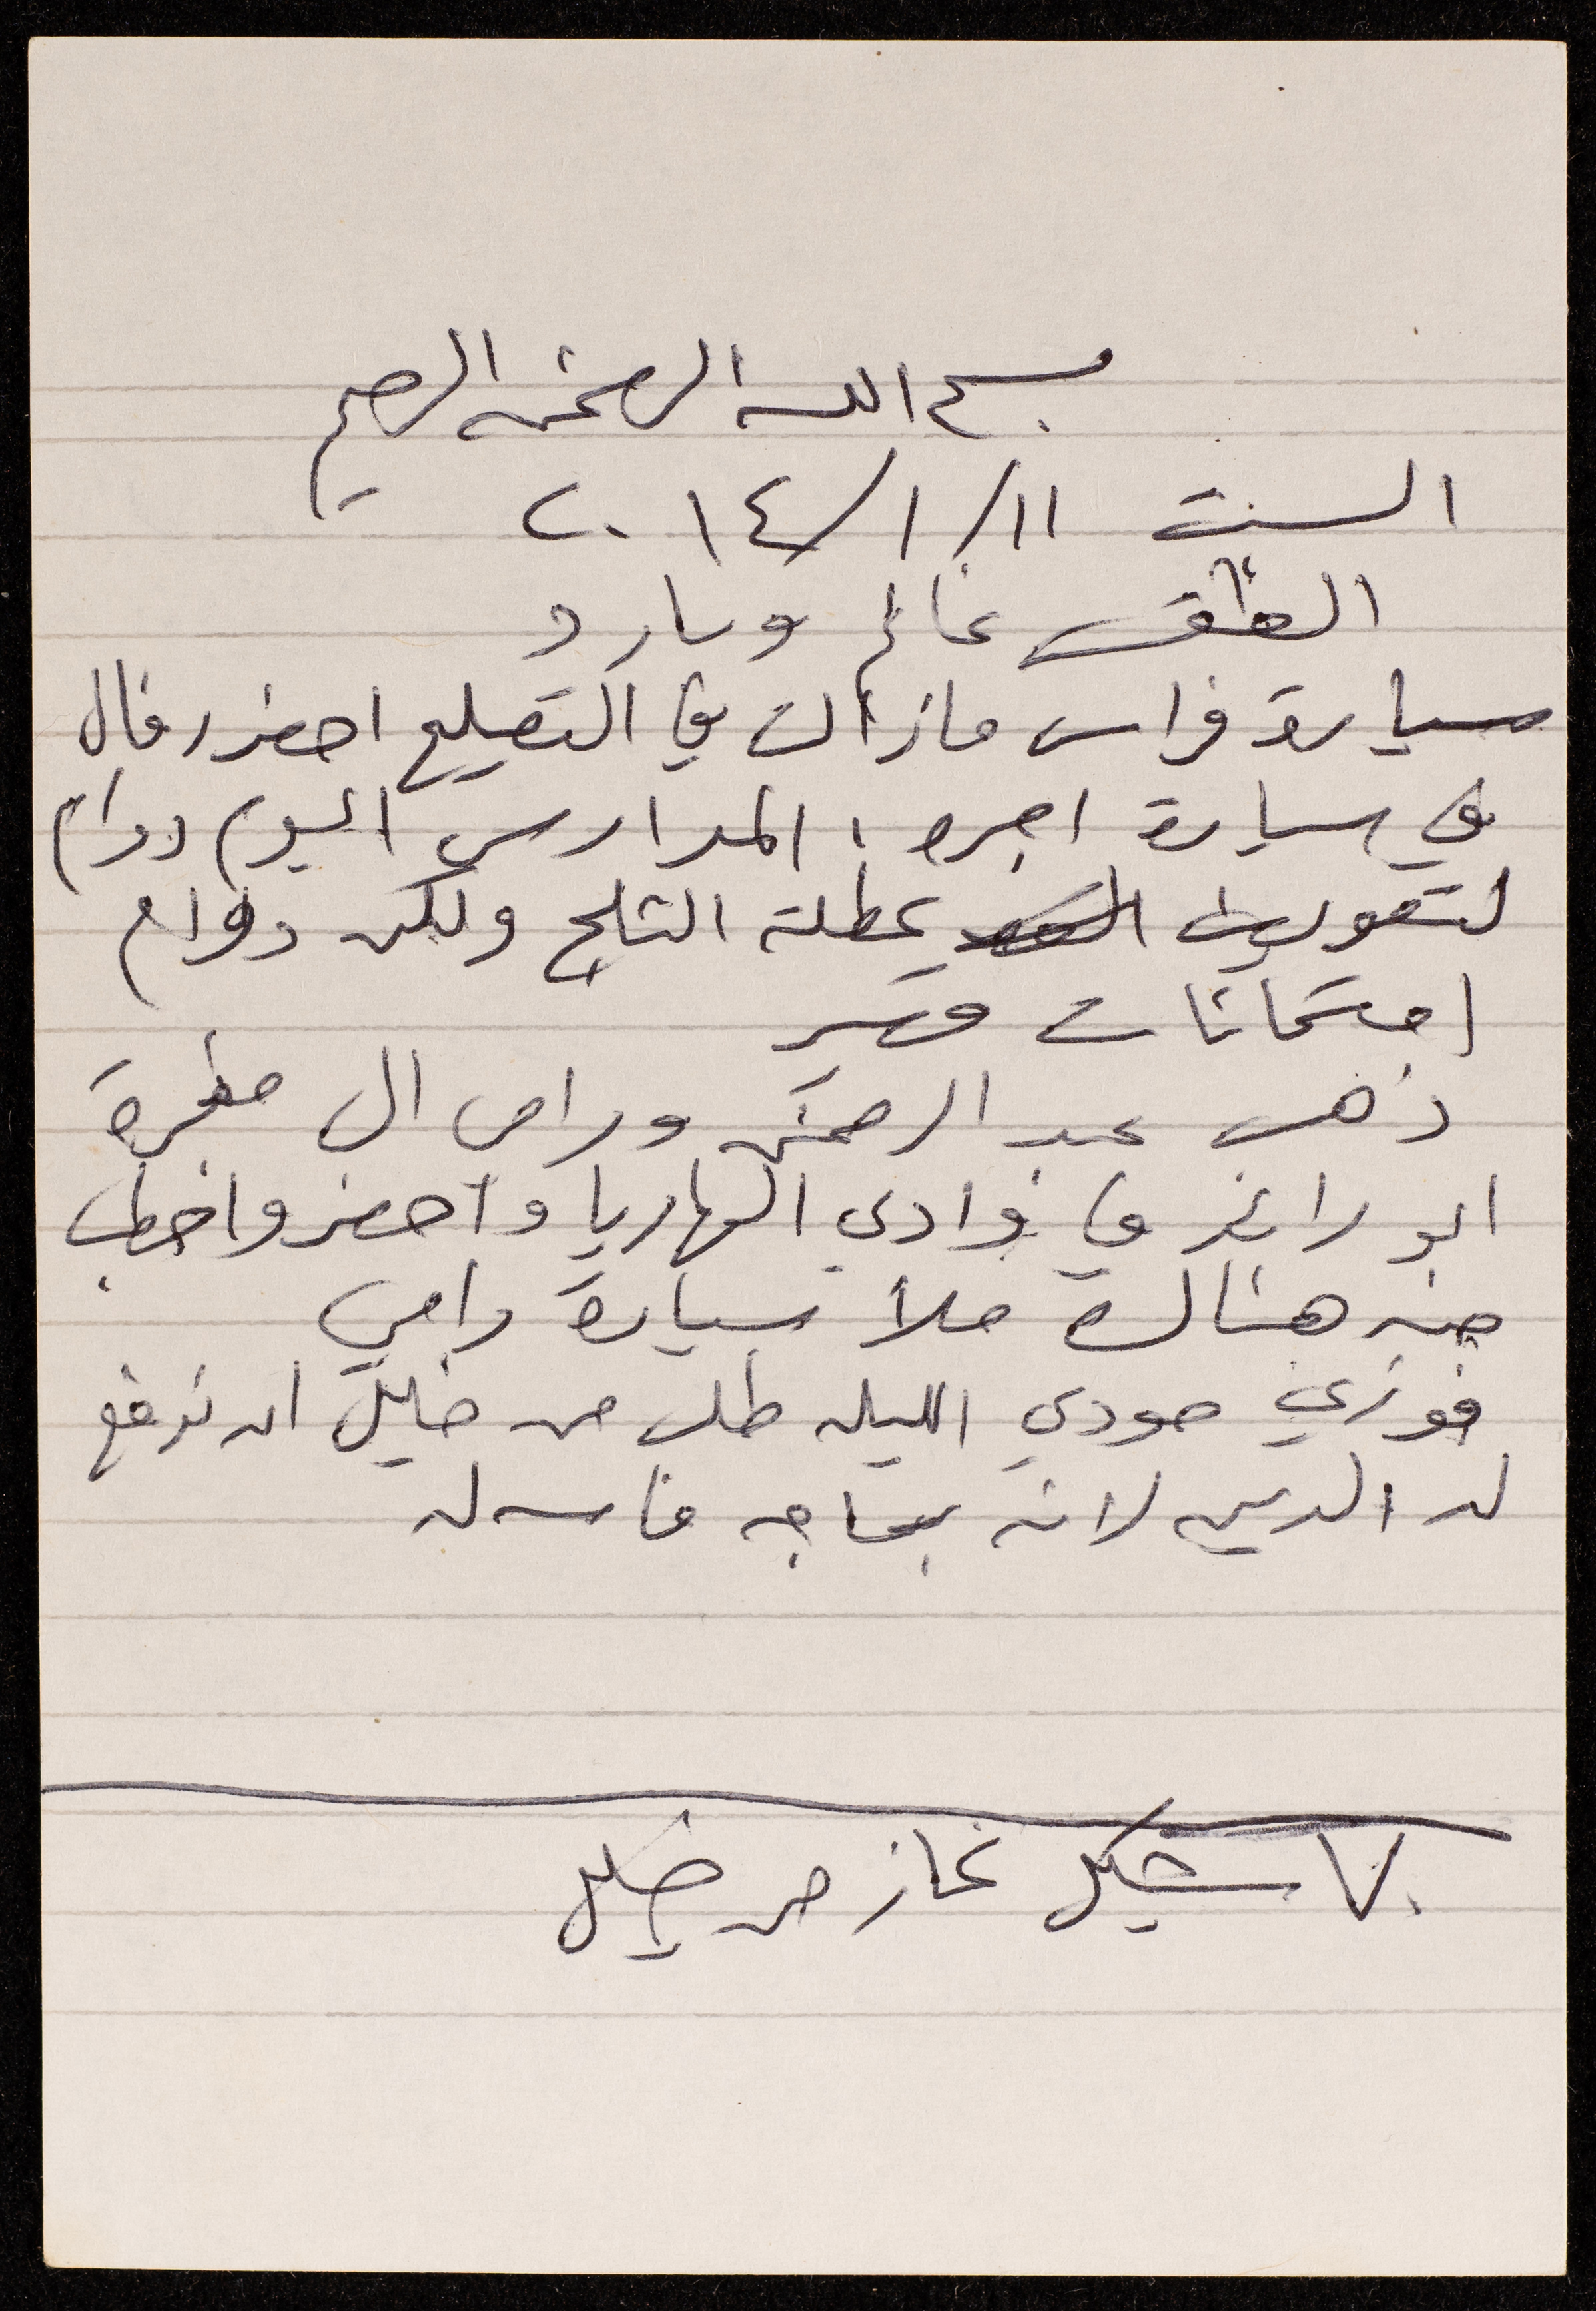 بسم الله الرحمن الرحيم
السبت ١١/١/٢٠١٤
الطقس غائم وبارد
سيارة فراس مازالت في التصليح احضر رفال
في سيارة اجره، المدارس اليوم دوام
لتعويض عطلة الثلج ولكن دوام
امتحانات وتسر
ذهب عبد الرحمن ورامي الى مفجرة
ابو رائد في وادي الهاريا واحضروا حطب
من هناك ملأ سيارة رامي
فوزي حودي الليله طلب من خليل ان ندفع
له الدين لانه بحاجه ماسه له
٧٠ شيكل غاز من خليل